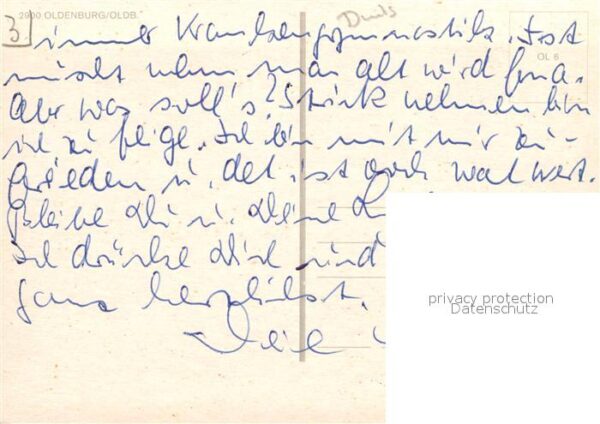 2900 OLDENBURG/OLDB.
3
OL 6
immer Krankengymnastik. Fast
nischt wenn man alt wird
Aber was soll's? Strick nehmen bin
ich zu feige. Ich bin mit mir zu-
frieden u. det is doch wat wert.
Bleibe Du u. Deine
Ich drücke Dich und
ganz herzlichst.
Deine
privacy protection
Datenschutz